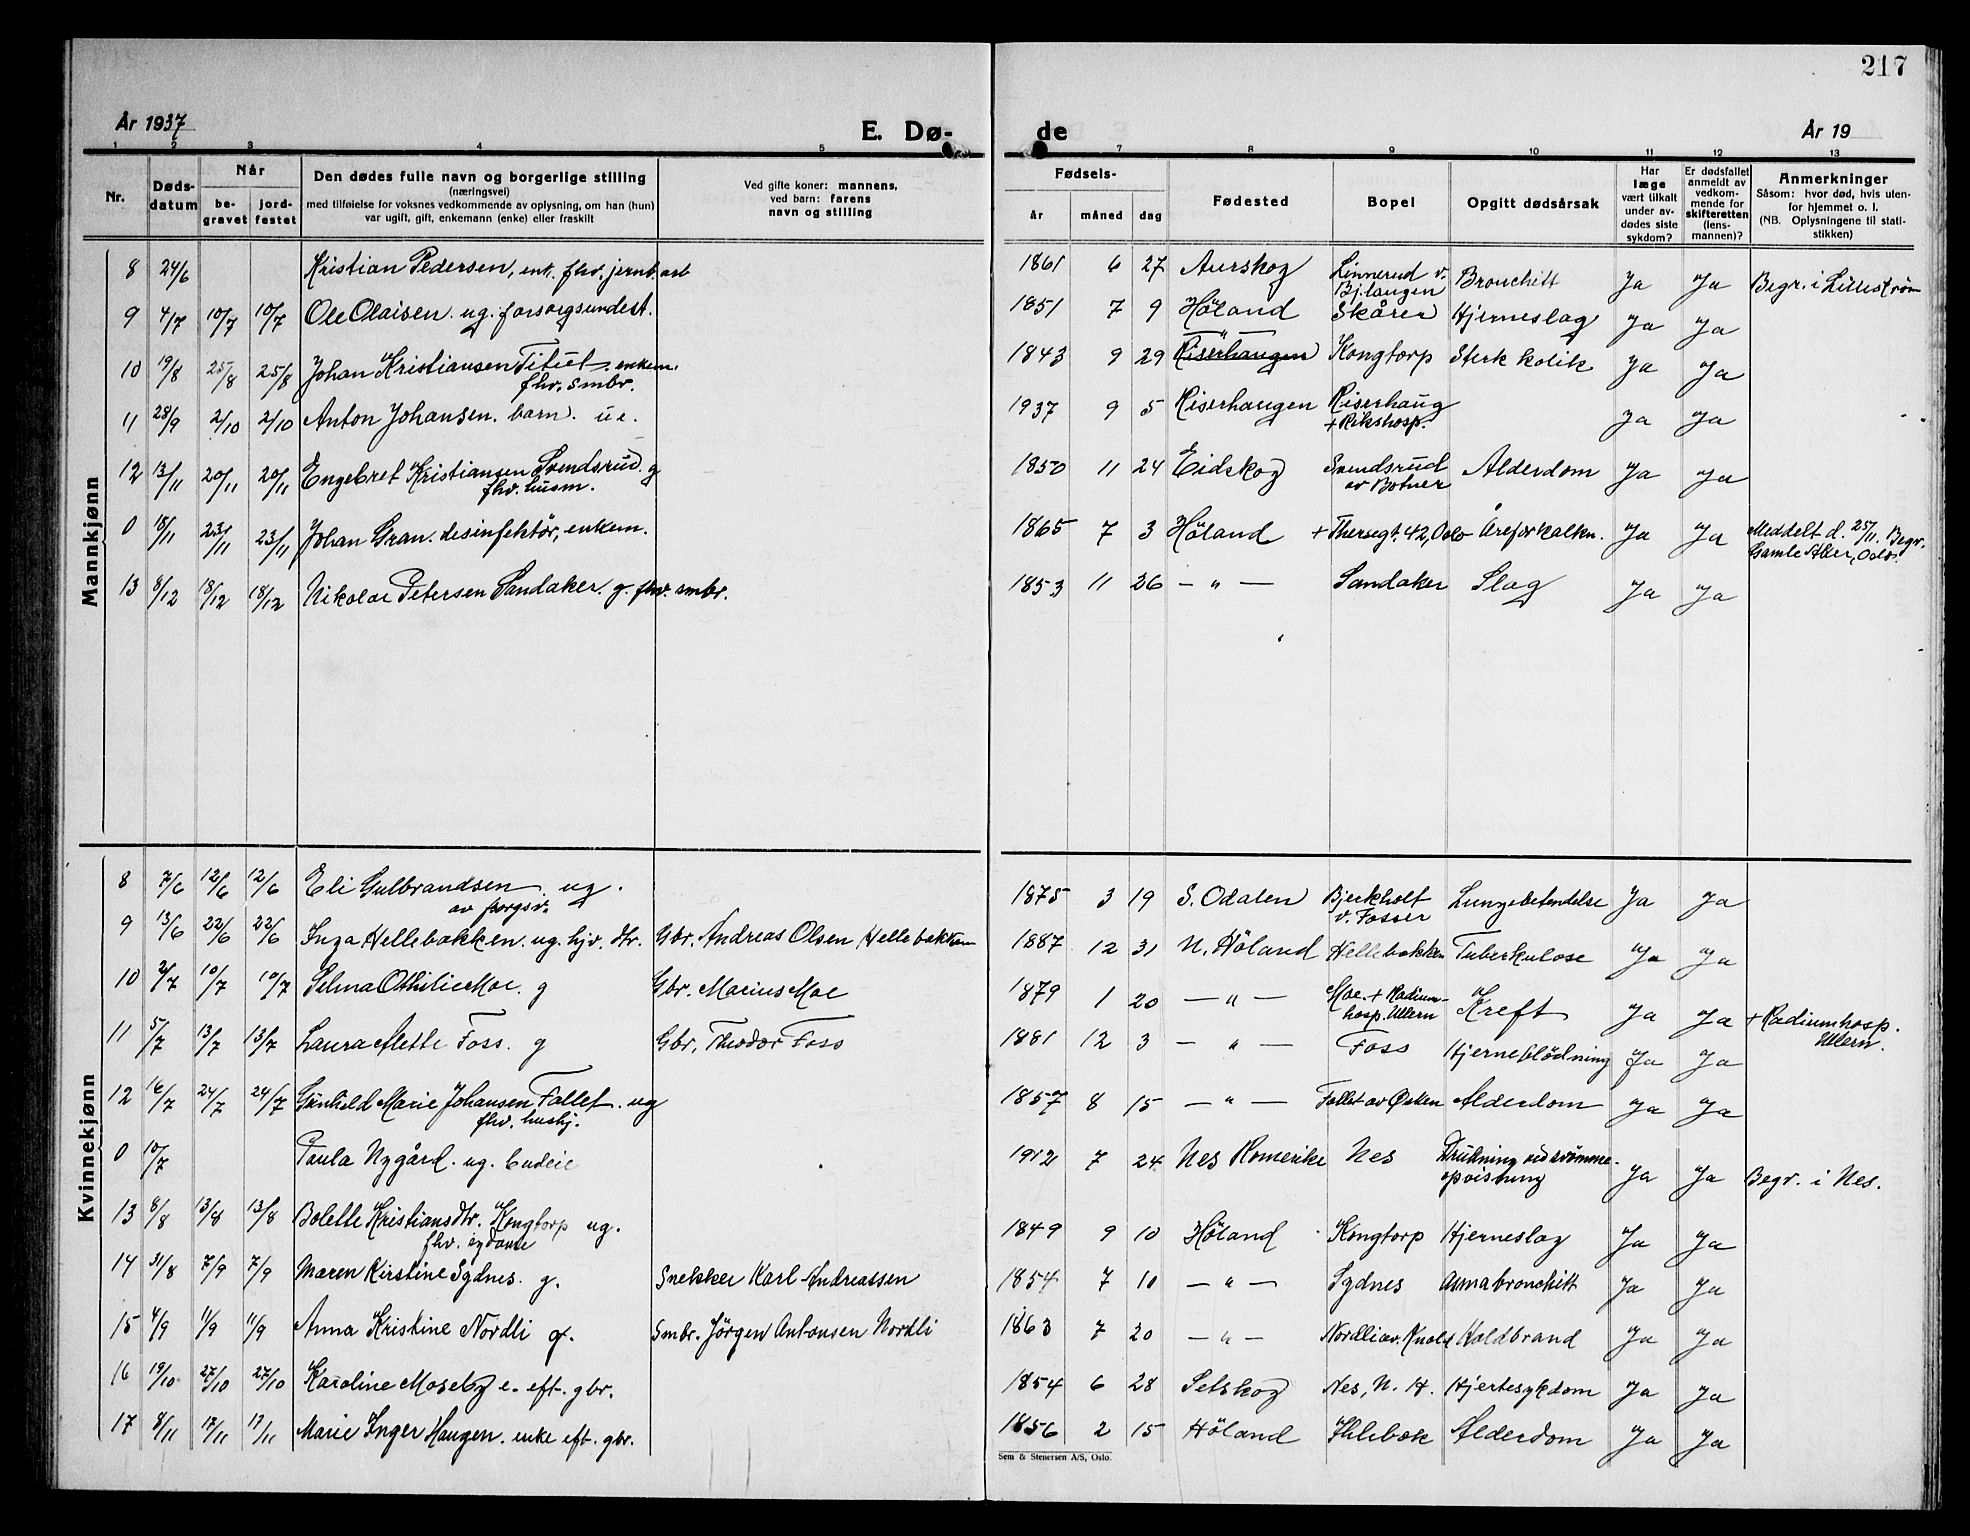 217
År 1937
E. Dø-
de
År 19
1 2 3 4 5 7 8 9 10 11 12 13
Nr.
Døds-
datum
Når
be-
gravet
jord-
festet
Den dødes fulle navn og borgerlige stilling
(næringsvei)
med tilføielse for voksnes vedkommende av oplysning, om han (hun)
var ugift, gift, enkemann (enke) eller fraskilt
Ved gifte koner: mannens,
ved barn: farens
navn og stilling
Fødsels-
år
måned
dag
Fødested
Bopel
Opgitt dødsårsak
Har
læge
vært tilkalt
under av-
dødes siste
sykdom?
Er dødsfallet
anmeldt av
vedkom-
mende for
skifteretten
(lens-
mannen)?
Anmerkninger
Såsom: hvor død, hvis uten-
for hjemmet o. l.
(NB. Oplysningene til stati-
stikken)
Mannkjønn
8 24/6 Kristian Pedersen, enk. fhv. jernb. arb 1861 6 27 Aurskog Linnerud v. Bjlangen Bronchitt Ja Ja Begr. i Lillestrøm
9 4/7 10/7 10/7 Ole Olaisen. ug. forsorgsundest. 1851 7 9 Höland Skårer Hjerneslag Ja Ja
10 19/8 25/8 25/8 Johan Kristiansen Titut. enkem. fhv. smbr. 1843 9 29 Riserhaugen Kongtorp Sterk kolik Ja Ja
11 28/9 2/10 2/10 Anton Johansen. barn. u e. 1937 9 5 Riserhaugen Riserhaug + Rikshosp. Ja Ja
12 13/11 20/11 20/11 Engebret Kristiansen Svendsrud. g fhv. husm. 1850 11 24 Eidskog Svendsrud av Botner Alderdom Ja Ja
0 18/11 23/11 23/11 Johan Gran. desinfektör, enkem. 1865 7 3 Höland + Theresegt. 42, Oslo Åreforkalkn. Ja Ja Meddelt d. 25/11. Begr. Gamle Aker, Oslo.
13 8/12 18/12 18/12 Nikolai Petersen Sandaker. g. fhv. smbr. 1853 11 26 — " — Sandaker Slag Ja Ja
Kvinnekjønn
8 7/6 12/6 12/6 Eli Gulbrandsen. ug. av forgsv. 1875 3 19 S. Odalen Bjerkholt v. Fosser Lungebetendelse Ja Ja
9 13/6 22/6 22/6 Inga Hellebakken. ug. hjv. dtr. Gbr. Andreas Olsen Hellebækken 1887 12 31 N. Höland Hellebækken Tuberkulose Ja Ja
10 2/7 10/7 10/7 Selma Othilie Moe. g Gbr. Marius Moe 1879 1 20 — " — Moe. + Radium-hosp. Ullern Kreft Ja Ja + Radiumhosp. Ullern.
11 5/7 13/7 13/7 Laura Mette Foss. g Gbr. Theodor Foss 1881 12 3 — " — Foss Hjerneblödning Ja Ja
12 16/7 24/7 24/7 Gunhild Marie Johansen Fallet. ug fhv. hushj. 1857 8 15 — " — Fallet av Ösken Alderdom Ja Ja
0 10/7 Paula Nygård. ug. budeie 1912 7 24 Nes Romerike Nes Drukning ved svømme-opvisning Ja Ja Begr. i Nes.
13 8/8 13/8 13/8 Bolette Kristiansdtr. Kongtorp ug. fhv. sydame 1849 9 10 Höland Kongtorp Hjerneslag Ja Ja
14 31/8 7/9 7/9 Maren Kirstine Sydnes. g. Snekker Karl Andreassen 1854 7 10 — " — Sydnes Asmabronchitt Ja Ja
15 4/9 11/9 11/9 Anna Kristine Nordli g. Smbr. Jörgen Antonsen Nordli 1863 7 20 — " — Nordli av. Knold Koldbrand Ja Ja
16 19/10 27/10 27/10 Karoline Moseby e. eft. gbr. 1854 6 28 Setskog Nes, N. H. Hjertesykdom Ja Ja
17 8/11 17/11 17/11 Marie Inger Haugen. enke eft. gbr. 1856 2 15 Höland Ihlebæk Alderdom Ja Ja
Sem & Stenersen A/S, Oslo.